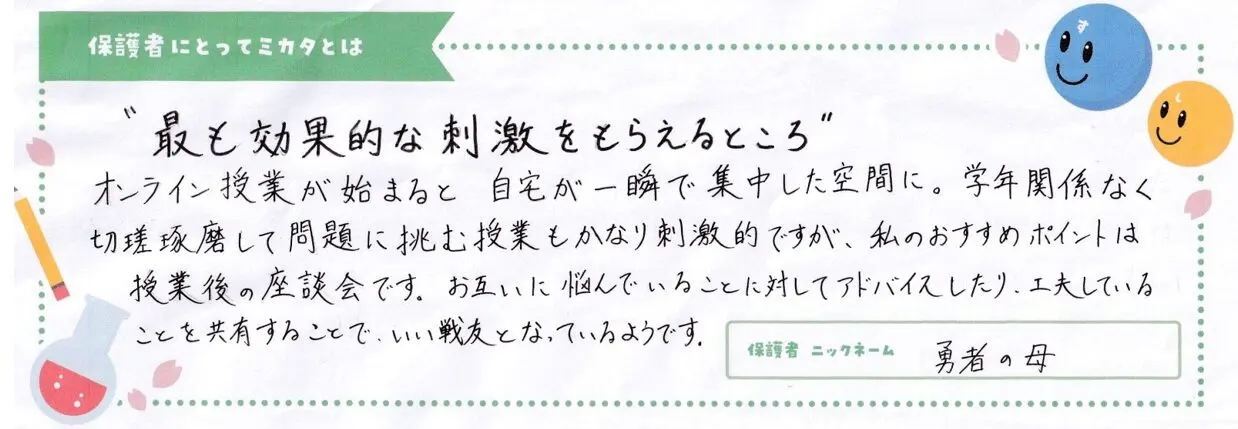 保護者にとってミカタとは
す
し
"最も効果的な刺激をもらえるところ"
オンライン授業が始まると 自宅が一瞬で集中した空間に。学年関係なく
切瑳琢磨して問題に挑む授業もかなり刺激的ですが、私のおすすめポイントは
授業後の座談会です。お互いに悩んでいることに対してアドバイスしたり、工夫している
ことを共有することで、いい戦友となっているようです。
保護者 ニックネーム 勇者の母